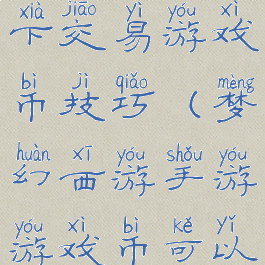 xià jiāo yì yóu xì
下交易游戏
bì jì qiǎo mèng
币技巧（梦
huàn xī yóu shǒu yóu
幻西游手游
yóu xì bì kě yǐ
游戏币可以